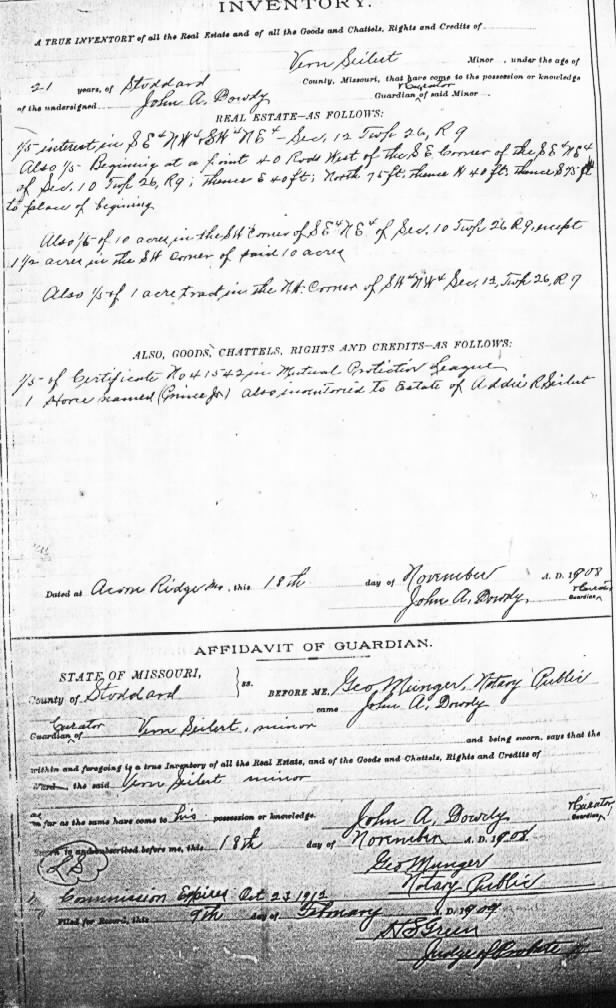 INVENTORY.
A TRUE INVENTORY of all the Real Estate and of all the Goods and Chattels, Rights and Credits of
Vern Seibert Minor, under the age of
21 years, of Stoddard County, Missouri, that have come to the possession or knowledge
of the undersigned John A. Dowdy Curator Guardian of said Minor
REAL ESTATE—AS FOLLOWS:
1/5 interest in SE⁴ NW⁴ & SW⁴ NE⁴ – Sec, 12 Twp 26, R 9
Also 1/5 Beginning at a point 40 Rods West of the SE Corner of the SE⁴ NE⁴
of Sec. 10 Twp 26, R9; thence E 40 ft; North 75 ft; thence W 40 ft; thence S 75 ft
to place of begining
Also 1/5 of 10 acres in the SW Corner of SE⁴ NE⁴ of Sec, 10 Twp 26 R9, except
1 1/2 acres in the SW Corner of said 10 acres
Also 1/5 of 1 acre tract in the NW. Corner of SW⁴ NW⁴ Sec, 12, Twp 26, R 9
ALSO, GOODS, CHATTELS, RIGHTS AND CREDITS—AS FOLLOWS:
1/5 of Certificate No 41542 in Mutual Protection League
1 Horse named (Prince Jr) also inventoried to Estate of Addie R Seibert
Dated at Acorn Ridge Mo, this 18th day of November A. D. 1908
John A. Dowdy, Curator Guardian
AFFIDAVIT OF GUARDIAN.
STATE OF MISSOURI,
County of Stoddard } ss. BEFORE ME, Geo Munger, Notary Public
came John A, Dowdy
Curator Guardian of Vern Seibert, minor and being sworn, says that the
within and foregoing is a true Inventory of all the Real Estate, and of the Goods and Chattels, Rights and Credits of
Ward the said Vern Seibert minor
as far as the same have come to his possession or knowledge. John A, Dowdy Curator Guardian
Sworn to and subscribed before me, this 18th day of November A. D. 1908
28
Geo Munger
Notary Public
Commission Expires Oct 23 1912
Filed for Record, this 9th day of February A. D. 1909
H S Green
Judge of Probate